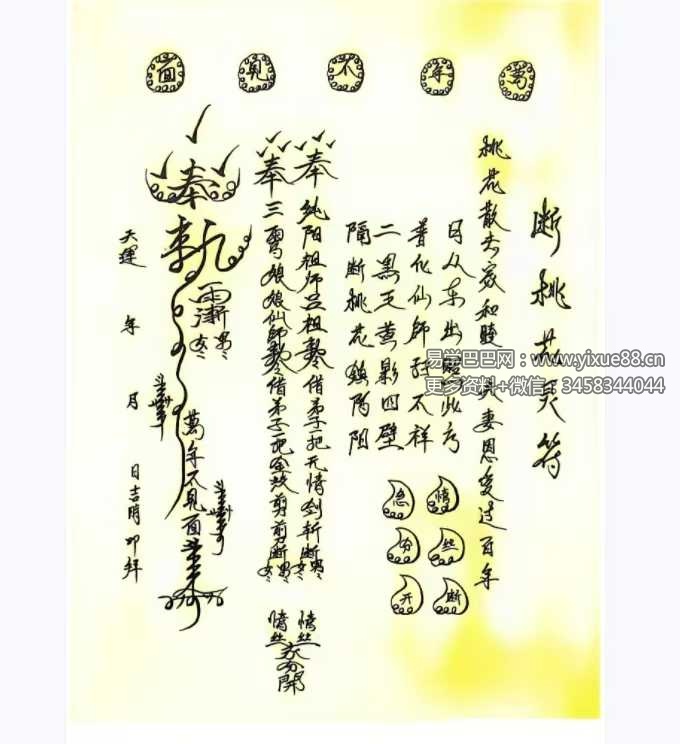 萬年不見面
断桃花灵符
桃花散去家和睦 夫妻恩爱过百年
日从东出照此方
普化仙師不祥
二黑五黄影四壁
隔断桃花镇阴阳
情丝断
急分开
奉纯阳祖师吕祖敕令借弟子一把无情剑斩断男女情丝
奉三霄娘娘仙師敕令借弟子一把金蛟剪剪断男女情丝
永分開
奉
男女
萬年不見面
天運 年 月 日吉時叩拜
易学巴巴网：www.yixue88.cn
更多资料+微信：3458344044